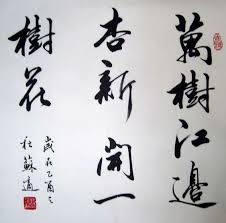 萬樹江邊
杏新開一
樹花
歲在乙酉